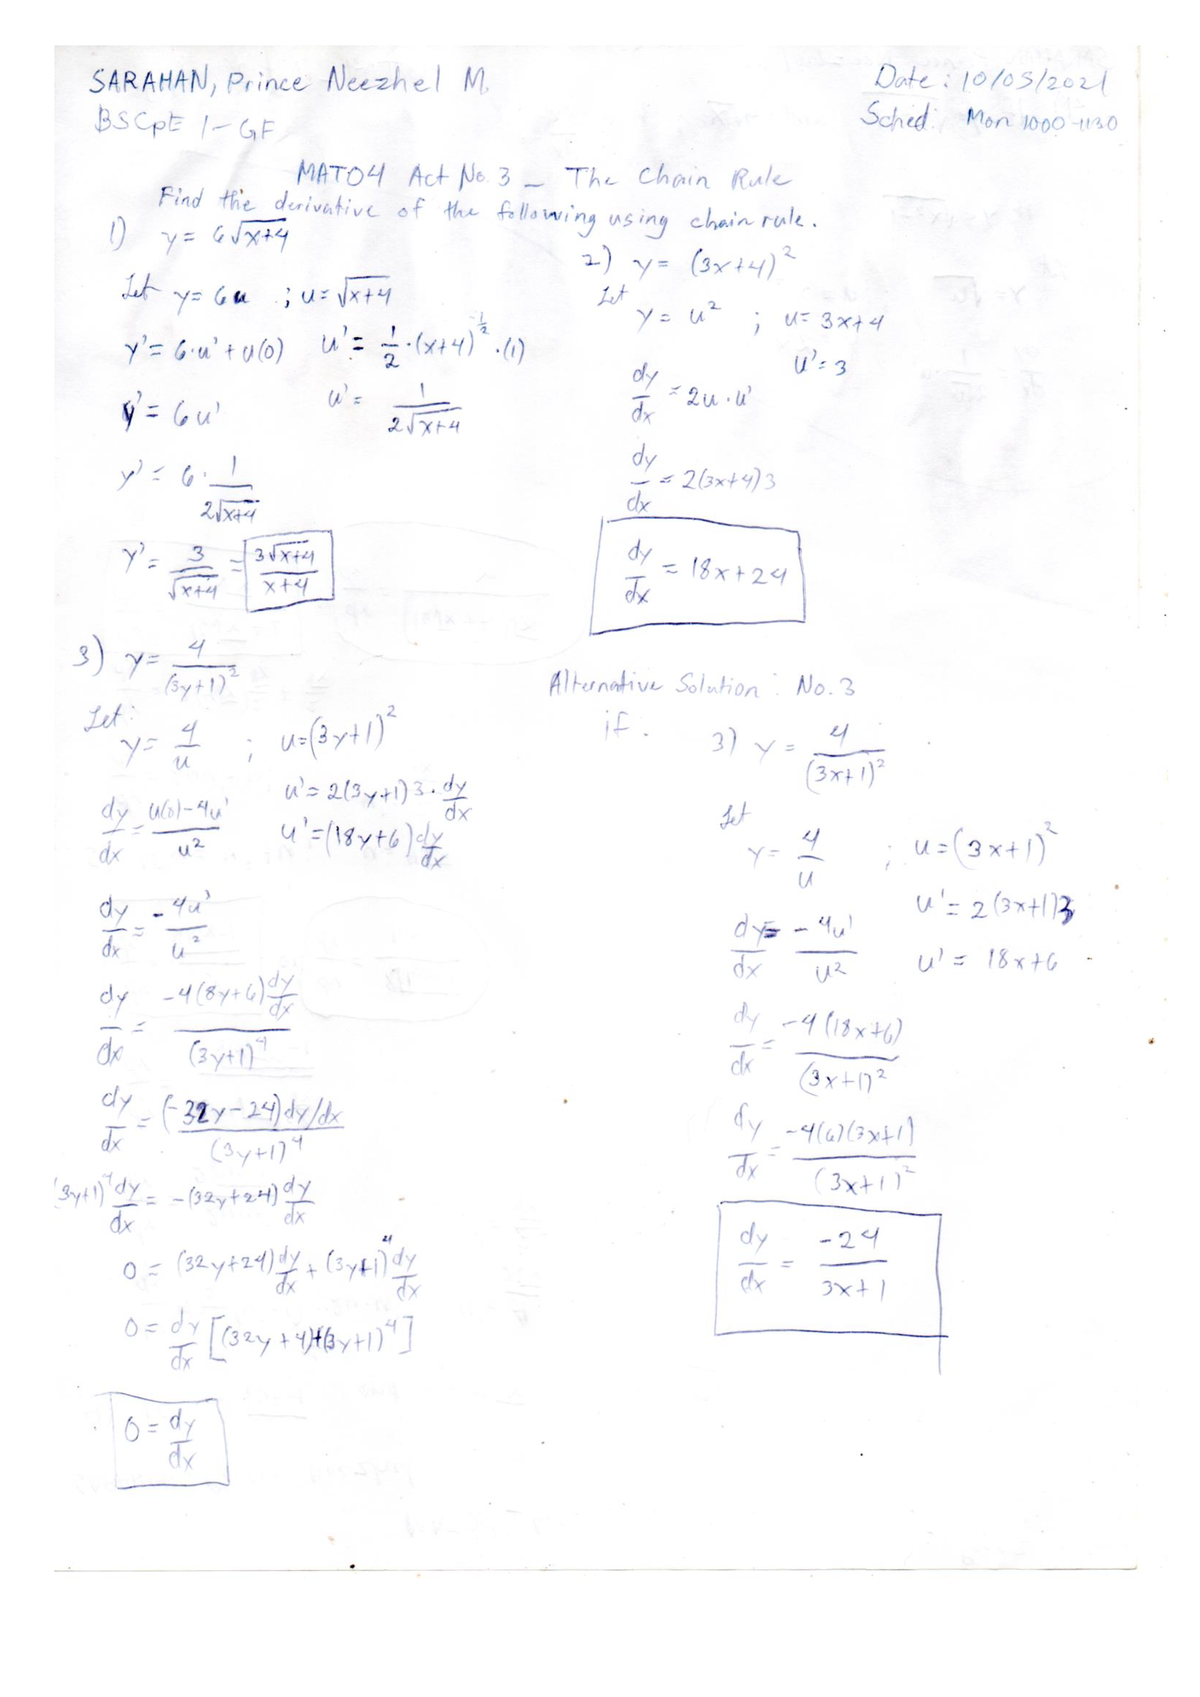 SARAHAN, Prince Neezhel M.
Date: 10/05/2021
BSCpE 1-GF
Sched: Mon 1000-1130
MAT04 Act No. 3 - The Chain Rule
Find the derivative of the following using chain rule.
1) y = 6√x+4
Let y = 6u ; u = √x+4
y' = 6·u' + u(0) u' = 1/2 · (x+4)^-1/2 · (1)
y' = 6u' u' = 1/(2√x+4)
y' = 6 · 1/(2√x+4)
y' = 3/√x+4 = 3√x+4/(x+4)
2) y = (3x+4)²
Let
y = u² ; u = 3x+4
u' = 3
dy/dx = 2u·u'
dy/dx = 2(3x+4)3
dy/dx = 18x+24
3) y = 4/(3y+1)²
Let:
y = 4/u ; u = (3y+1)²
u' = 2(3y+1)3 · dy/dx
dy/dx = (u(0)-4u')/u² u' = (18y+6)dy/dx
dy/dx = -4u'/u²
dy/dx = -4(8y+6)dy/dx / (3y+1)⁴
dy/dx = (-32y-24)dy/dx / (3y+1)⁴
(3y+1)⁴ dy/dx = -(32y+24) dy/dx
0 = (32y+24)dy/dx + (3y+1)⁴ dy/dx
0 = dy/dx [(32y+4)+(3y+1)⁴]
0 = dy/dx
Alternative Solution: No. 3
if:
3) y = 4/(3x+1)²
Let
y = 4/u ; u = (3x+1)²
u' = 2(3x+1)3
dy/dx = -4u'/u² u' = 18x+6
dy/dx = -4(18x+6)/(3x+1)²
dy/dx = -4(6)(3x+1)/(3x+1)²
dy/dx = -24/(3x+1)